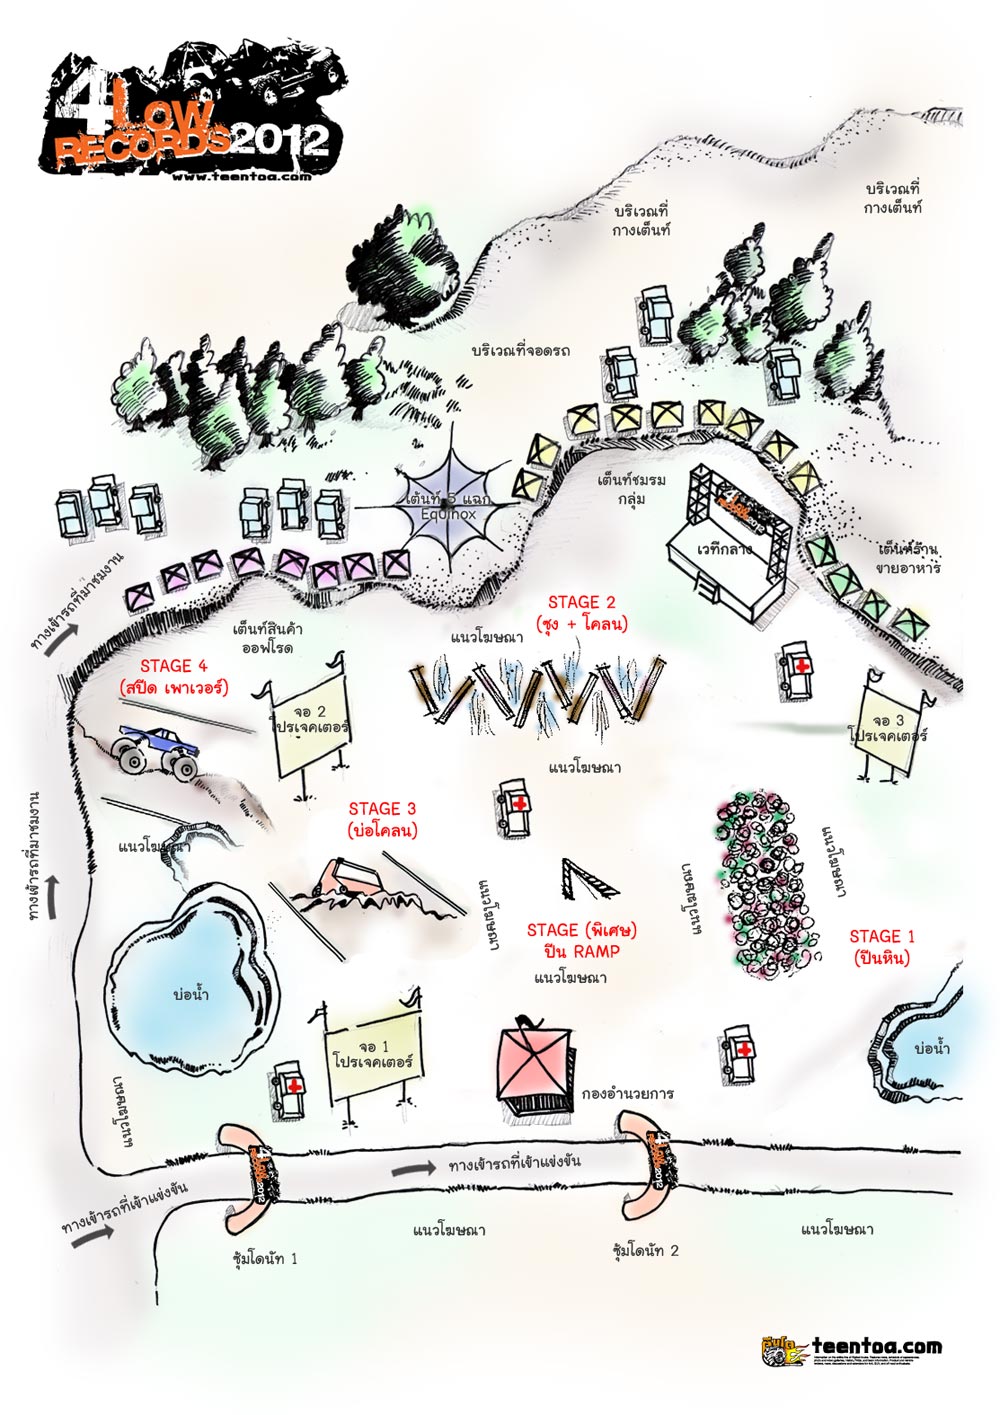 4Low
RECORDS2012
www.teentoa.com
บริเวณที่
กางเต็นท์
บริเวณที่
กางเต็นท์
บริเวณที่จอดรถ
เต็นท์ชมรม
กลุ่ม
เต้นท์ 5 แฉก
Equinox
เวทีกลาง
เต็นท์ร้าน
ขายอาหาร
ทางเข้ารถที่มาชมงาน
เต็นท์สินค้า
ออฟโรด
แนวโฆษณา
STAGE 2
(ซุง + โคลน)
STAGE 4
(สปีด เพาเวอร์)
จอ 2
โปรเจคเตอร์
จอ 3
โปรเจคเตอร์
แนวโฆษณา
STAGE 3
(บ่อโคลน)
แนวโฆษณา
ทางเข้ารถที่มาชมงาน
แนวโฆษณา
แนวโฆษณา
แนวโฆษณา
STAGE (พิเศษ)
ปีน RAMP
แนวโฆษณา
STAGE 1
(ปีนหิน)
บ่อน้ำ
บ่อน้ำ
จอ 1
โปรเจคเตอร์
กองอำนวยการ
แนวโฆษณา
4Low
2012
4Low
2012
ทางเข้ารถที่เข้าแข่งขัน
ทางเข้ารถที่เข้าแข่งขัน
แนวโฆษณา
แนวโฆษณา
ซุ้มโดนัท 1
ซุ้มโดนัท 2
teentoa.com